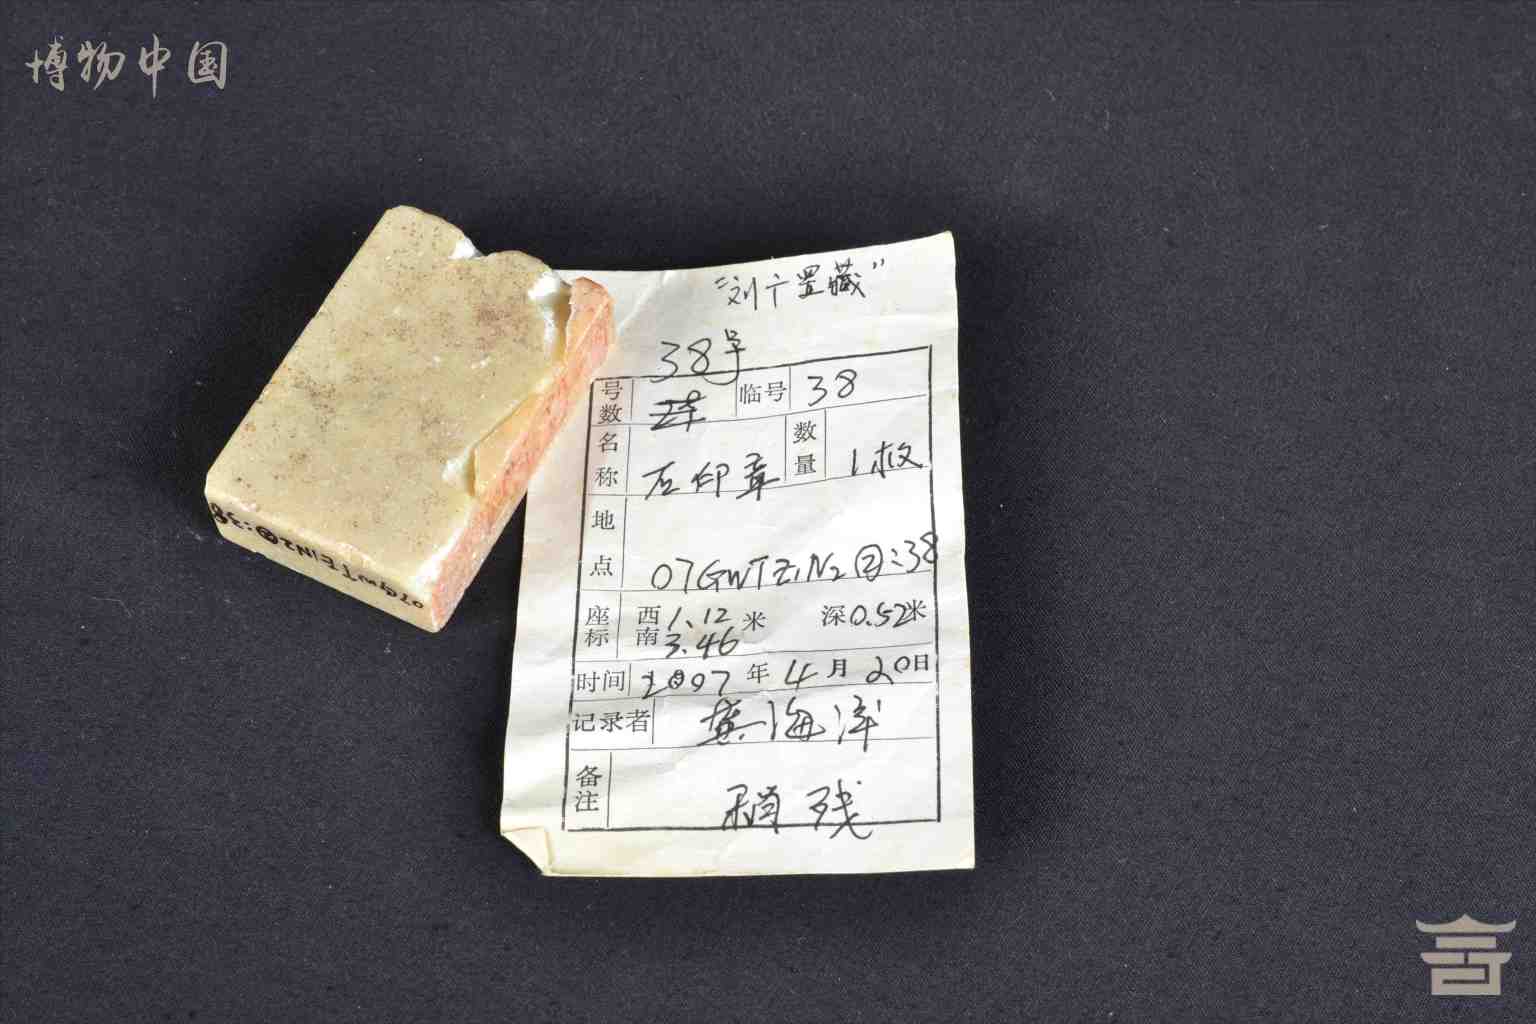 博物中国
"刘广罡藏"
38号
号数 临号 38
名称 石印章 数量 1枚
地点 07GWTZ1N2②:38
座标 西1.12米 南3.46 深0.52米
时间 2007年4月20日
记录者 黄海洋
备注 稍残
07GWTZ1N2②:38